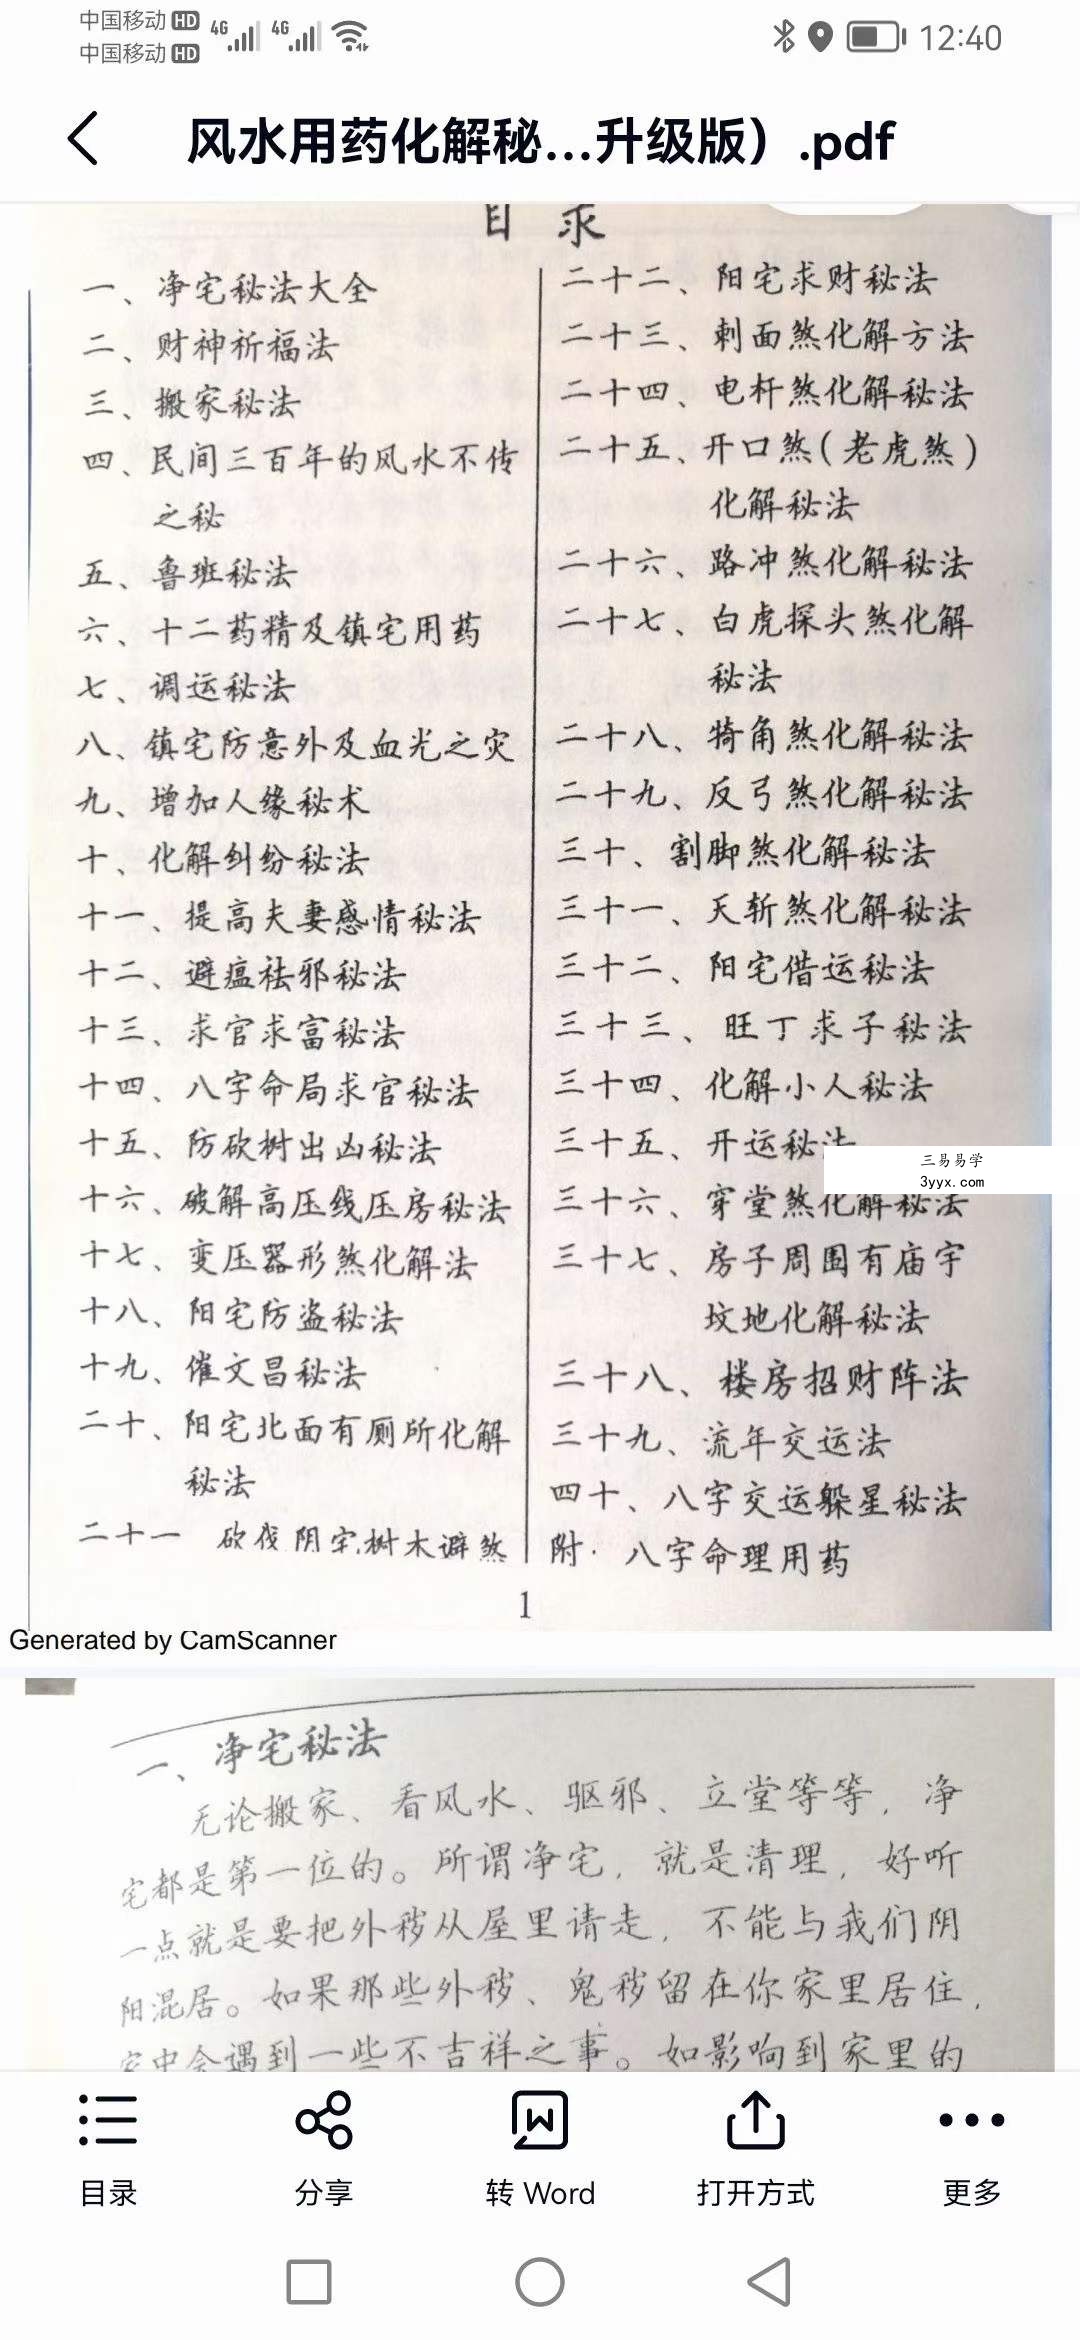 中国移动 HD 4G 4G 12:40
中国移动 HD
风水用药化解秘...升级版）.pdf
目 录
一、净宅秘法大全
二、财神祈福法
三、搬家秘法
四、民间三百年的风水不传
之秘
五、鲁班秘法
六、十二药精及镇宅用药
七、调运秘法
八、镇宅防意外及血光之灾
九、增加人缘秘术
十、化解纠纷秘法
十一、提高夫妻感情秘法
十二、避瘟祛邪秘法
十三、求官求富秘法
十四、八字命局求官秘法
十五、防砍树出凶秘法
十六、破解高压线压房秘法
十七、变压器形煞化解法
十八、阳宅防盗秘法
十九、催文昌秘法
二十、阳宅北面有厕所化解
秘法
二十一 砍伐阴宅树木避煞
二十二、阳宅求财秘法
二十三、刺面煞化解方法
二十四、电杆煞化解秘法
二十五、开口煞(老虎煞)
化解秘法
二十六、路冲煞化解秘法
二十七、白虎探头煞化解
秘法
二十八、犄角煞化解秘法
二十九、反弓煞化解秘法
三十、割脚煞化解秘法
三十一、天斩煞化解秘法
三十二、阳宅借运秘法
三十三、旺丁求子秘法
三十四、化解小人秘法
三十五、开运秘法
三易易学
3yyx.com
三十六、穿堂煞化解秘法
三十七、房子周围有庙宇
坟地化解秘法
三十八、楼房招财阵法
三十九、流年交运法
四十、八字交运躲星秘法
附·八字命理用药
1
Generated by CamScanner
一、净宅秘法
无论搬家、看风水、驱邪、立堂等等，净
宅都是第一位的。所谓净宅，就是清理，好听
一点就是要把外秽从屋里请走，不能与我们阴
阳混居。如果那些外秽、鬼秽留在你家里居住，
家中会遇到一些不吉祥之事。如影响到家里的
目录
分享
转 Word
打开方式
更多